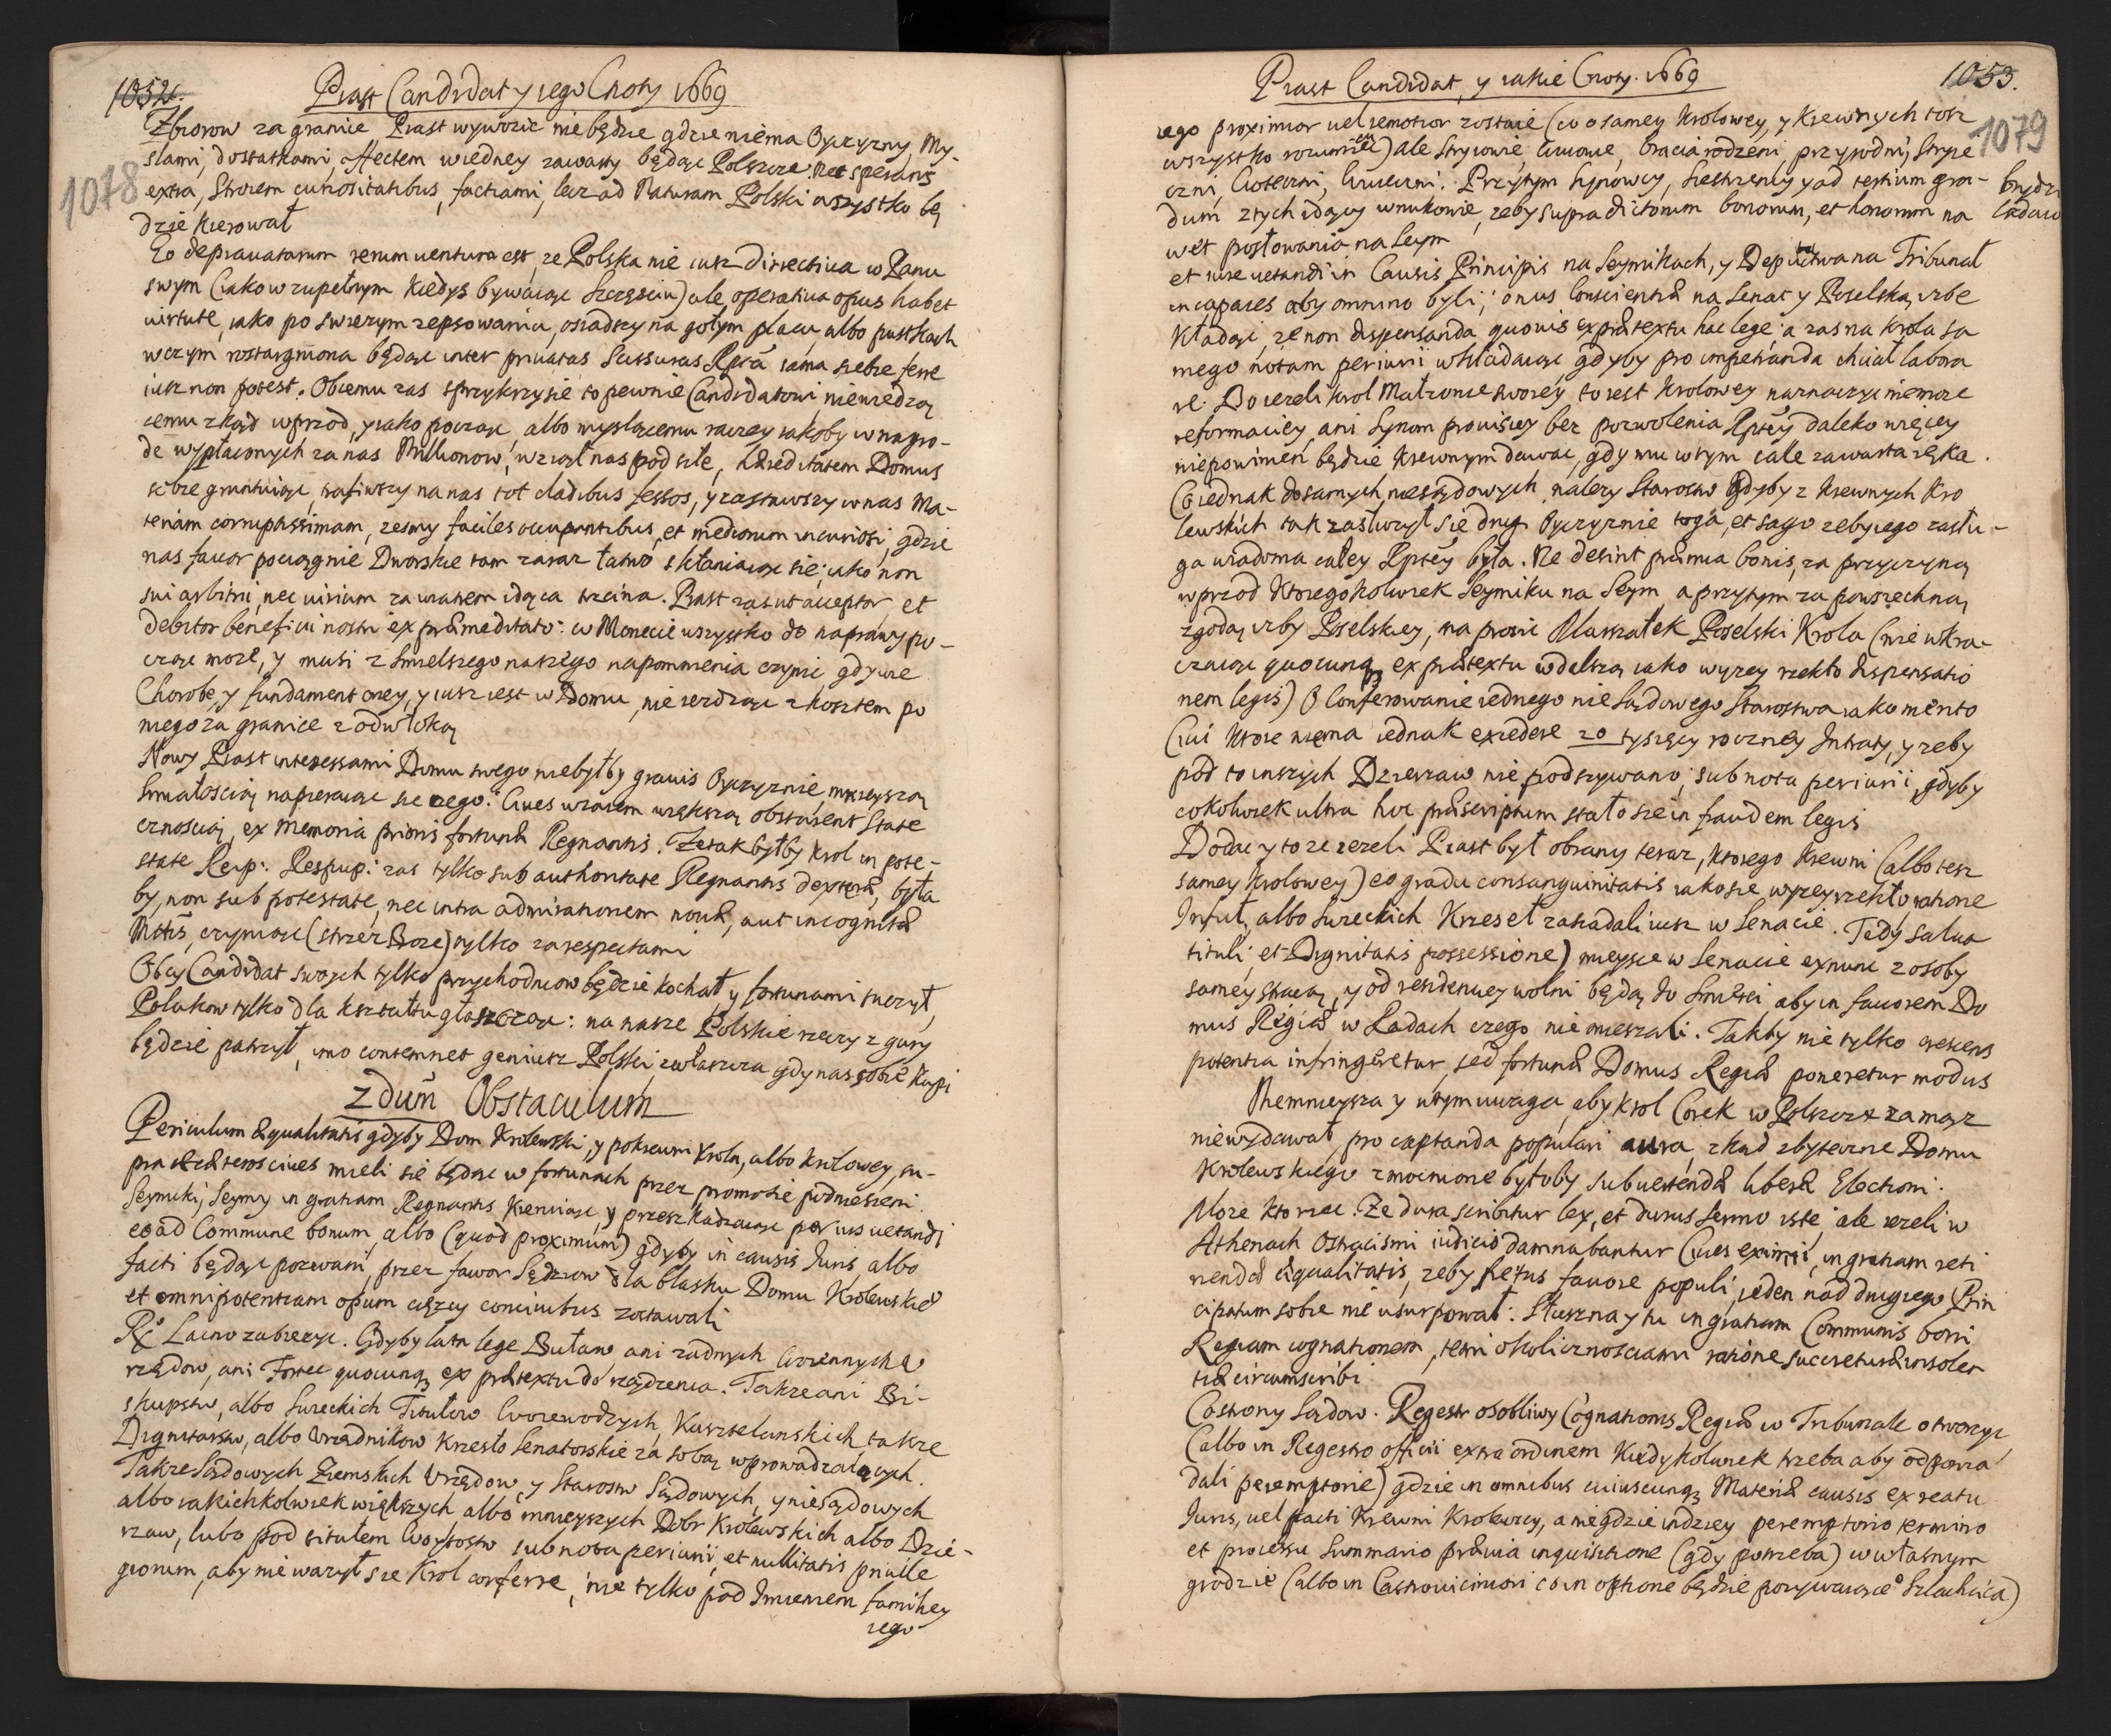 1052.
Piast Candidat y iego Cnoty 1669
1078
Zbiorow za granice Piast wywozic nie będzie gdzie niema Oyczyzny, My-
slami, dostatkami, Affectem wiedney zawarty będąc Polszcze: nec sperans
extra, Stroiem curiositatibus, factiami, lecz ad Naturam Polski wszystko bę
dzie kierował
Eo deprauatarum rerum uentum est, ze Polska nie iusz directiua w Panu
swym (iako w zupełnym kiedys bywaiąc szczęsciu) ale operatiua opus habet
uirtute, iako po swiezym zepsowaniu, osiadszy na gołym placu, albo pustkach
wczym rostargniona będąc inter priuatas Sussuras Rpta sama siebie ferre
iusz non potest. Obcemu zas sprzykrzy sie to pewnie Candidatowi niewiedzą
cemu zkąd wprzod, y iako począc, albo myslącemu raczey iakoby w nagro-
dę wypłaconych za nas Millionow, wziął nas pod siłę, haereditatem Domus
sobie gruntuiąc, trafiwszy na nas tot cladibus fessos, y zastawszy w nas Ma-
teriam corruptissimam, zesmy faciles occupantibus, et mediorum incuriosi, gdzie
nas fauor pociągnie Dworskie tam zaraz łatwo skłaniaiąc się; iako non
sui arbitrii, nec uirium za wiatrem idąca trzcina. Piast zas ut acceptor et
debitor beneficii nostri ex praemeditato: w Momencie wszystko do naprawy po-
cząc moze, y musi z smielszego naszego napomnienia czynic gdy wie
Chorobę, y fundament oney, y iusz iest w Domu, nie iezdząc z kosztem po
niego za granice z odwłoką
Nowy Piast interessami Domu swego niebyłby grauis Oyczyznie, mnieyszą
smiałoscią napieraiąc się tego: Ciues wzaiem większą obstarent State
cznoscią, ex memoria prioris fortunae Regnantis. Ze tak byłby Krol in pote-
state Reip: Respup: zas tylko sub authoritate Regnantis dextera, była
by, non sub potestate, nec intra admirationem nouae, aut incognitae
Mttis, czyniąc (strzez Boze) tylko za respectami
Obcy Candidat swoych tylko przychodniow będzie kochał, y fortunami tuczył,
Polakow tylko dla kształtu głaszcząc: na nasze Polskie rzeczy z gury
będzie patrzył, imo contemnet geniusz Polski zwłaszcza gdy nas sobie kupi
2dum Obstaculum
Periculum aequalitatis gdyby Dom Krolewski, y pokrewni Krola, albo Krolowey, su-
pra caeteros ciues mieli się będąc w fortunach przez promotie podniesieni.
Seymiki, Seymy in gratiam Regnantis kieruiąc, y przeszkadzaiąc per ius uetandi
eo ad Commune bonum, albo (quod proximum) gdyby in causis Iuris, albo
facti będąc pozwani, przez fawor Sędziow dla blasku Domu Krolewskieo
et omnipotentiam opum cięzcy conciuibus zostawali
Re Łacno zabiezyc. Gdyby lata lege Buław ani zadnych Woiennych U
rzędow, ani Fortec quocunq; ex praetextu do rządzenia. Takze ani Bi-
skupstw, albo Swieckich Tytułow Woiewodzych, Kasztelanskich, takze
Dignitarstw, albo Urzędnikow Krzesło Senatorskie za sobą wprowadzaiących.
Takze Sądowych Ziemskich Urzędow, y Starostw Sądowych, y niesądowych
albo iakichkolwiek większych, albo mnieyszych Dobr Krolewskich albo Dzie-
rzaw, lubo pod titułem Woytostw sub nota periurii, et nullitatis priuile
giorum, aby nie wazył sie Krol conferre, nie tylko pod Imieniem familiey
iego
Piast Candidat, y iakie Cnoty. 1669
1053.
1079
iego proximior uel remotior zostaie (co o samey Krolowey, y Krewnych tosz
wszystko rozumiem) ale Stryiowie, Wuiowie, bracia rodzeni, przyrodni, Stryie
czni, Cioteczni, Wuieczni. Przytym Synowcy, Siestrzency y ad tertium gra-
dum z tych idący wnukowie, zeby supra dictorum bonorum, et honorum na
wet posłowania na Seym
et iure uetandi in Causis Principis na Seymikach, y Deputactwa na Tribunał
incapaces aby omnino byli; onus Conscientiae na Senat y Poselską izbę
kładąc, ze non dispensanda quouis ex praetextu hac lege a zas na Krola sa
mego notam periurii wkładaiąc gdyby pro impetranda chciał labora
re. Bo iezeli Krol Małzonce swoiey to iest Krolowey naznaczyc niemoze
reformaciey, ani Synom prouisiey bez pozwolenia Rptey daleko więcey
niepowinien będzie krewnym dawac, gdy mu wtym cale zawarta ręka.
Co iednak do samych niesądowych nalezy Starostw Gdyby z krewnych Kro
lewskich tak zasłuzył się drugi Oyczyznie toga, et sago zeby iego zasłu-
ga wiadoma całey Rptey była. Ne desint praemia bonis, za przyczyną
wprzod ktoregokolwiek Seymiku na Seym a przytym za powszechną
zgodą izby Poselskiey, ma prosic Marszałek Poselski Krola (nie wkra-
czaiąc quocunq; ex praetextu w dalszą iako wyzey rzekło dispensatio
nem legis) O Conferowanie iednego nie Sądowego Starostwa iako merito
Ciui ktore niema iednak excedere 20 tysięcy roczney Intraty, y zeby
pod to inszych Dzierzaw nie podszywano; sub nota periurii, gdyby
cokolwiek ultra hoc praescriptum stało sie in fraudem legis
Dodac y to ze iezeli Piast był obrany teraz, ktorego krewni (albo tesz
samey Krolowey) eo gradu consanguinitatis iako sie wyzey rzekło, ratione
Infuł, albo Swieckich Krzeseł zasiadali iusz w Senacie. Tedy salua
tituli, et Dignitatis possessione) mieysce w Senacie ex nunc z osoby
samey stracą, y od residenciey wolni będą do Smierci, aby in fauorem Do
mus Regiae w Radach czego nie mieszali. Takby nie tylko crescens
potentia infringeretur, sed fortunae Domus Regiae poneretur modus
Niemnieysza y wtym uwaga, aby Krol Corek w Polszcze za mąz
niewydawał, pro captanda populari aura, zkąd zbyteczne Domu
Krolewskiego zmocnione byłoby subuertendae liberae Electioni.
Moze kto rzec. Ze dura scribitur lex, et durus sermo iste, ale iezeli w
Athenach Ostracismi iudicio damnabantur Ciues eximii, in gratiam reti
nendae aequalitatis, zeby fretus fauore populi, ieden nad drugiego Prin
cipatum sobie nie usurpował. Słuszna y tu in gratiam Communis boni
Regiam cognationem, temi okolicznosciami ratione succreturae insolen
tiae circumscribi
Co strony Sądow. Regestr osobliwy Cognationis Regiae w Tribunale otworzyc
(albo in Regestro officii extra ordinem kiedykolwiek trzeba aby odpowia
dali peremptorie) gdzie in omnibus cuiuscunq; Materiae causis ex reatu
Iuris, uel facti Krewni Krolewscy, a nie gdzie indziey peremptorio termino
et processu Summario praeuia inquisitione (gdy potrzeba) w własnym
grodzie (albo in Castro uiciniori co in optione będzie pozywaiąceo Szlachcica)